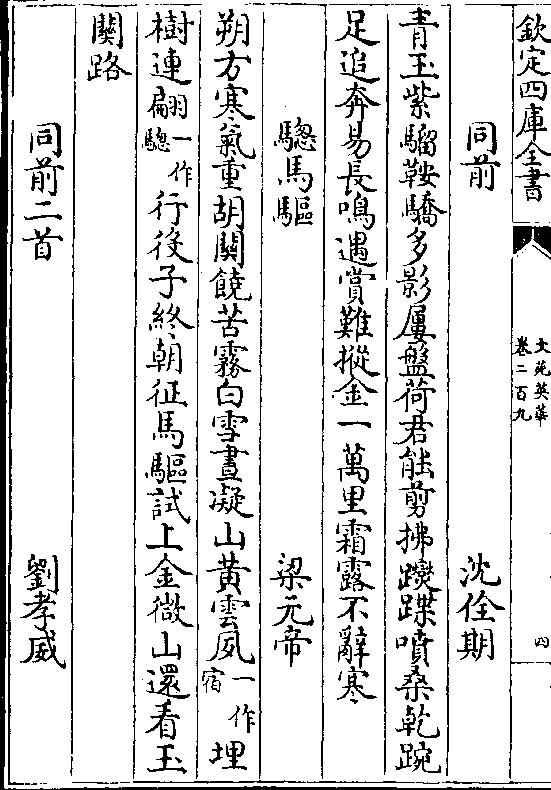 欽定四庫全書
文苑英華
卷二百九
四
同前 沈佺期
青玉紫騮鞍驕多影屢盤荷君能剪拂躞蹀噴桑乾踠
足追奔易長鳴遇賞難摐金一萬里霜露不辭寒
驄馬驅 梁元帝
朔方寒氣重胡關饒苦霧白雪晝凝山黃雲夙一作宿埋
樹連翩一作驄行後子終朝征馬驅試上金微山還看玉
關路
同前二首 劉孝威